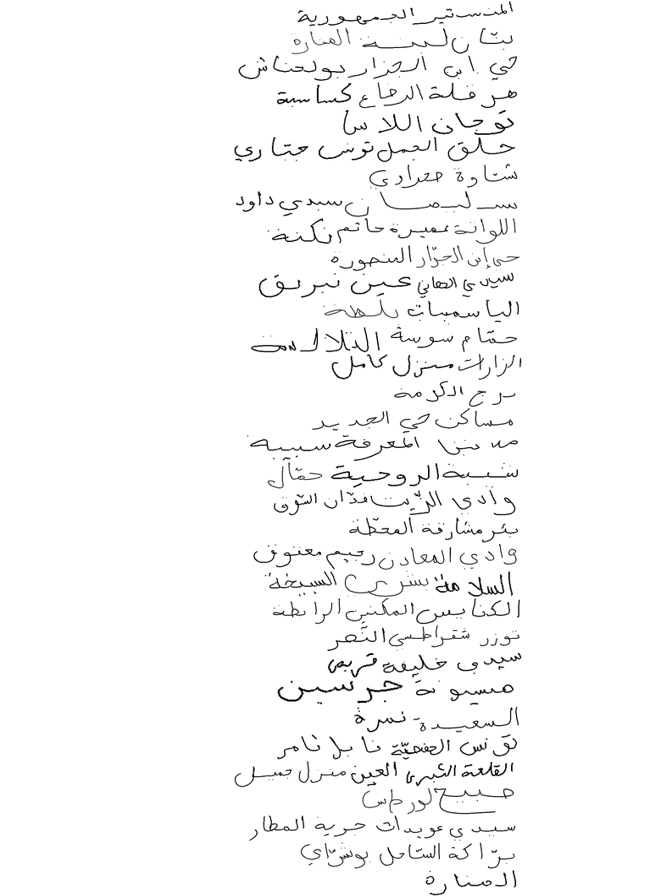 المنستير الجمهورية
بتان لبنة المنارة
حي ابن الجزار بولعناش
هرقلة الرصاع كساسبة
توجان اللاسا
حلق الجمل تونس جتاري
شتاوة صحراوي
سليمان سيدي داود
اللواتة عميرة حاتم نكتة
حي إبن الجزّار المنصورة
سيدي الهاني عين نبريق
الياسمينات بلطة
حمّام سوسة التلالسة
الزارات منزل كامل
برج الكرمة
مساكن حي الجديد
المعرفة سبيبة
شبيبة الروحية حمّال
وادي الزّيت فدّان السّوق
بئر مشارقة المحطّة
وادي المعادن رجيم معتوق
السلامة بشري السبيخة
الكنايس المكنين الرابطة
توزر شقراطس النّحر
سيدي خليفة قربص
ميسيونة جرسين
السعيدة نمرة
تونس الصّحيّة نابل ثامر
القلعة الكبرى العين منزل جميل
صبيح لورداس
سيدي عويدات جربة المطار
برّاكة السّاحل بوشرّاي
المنارة